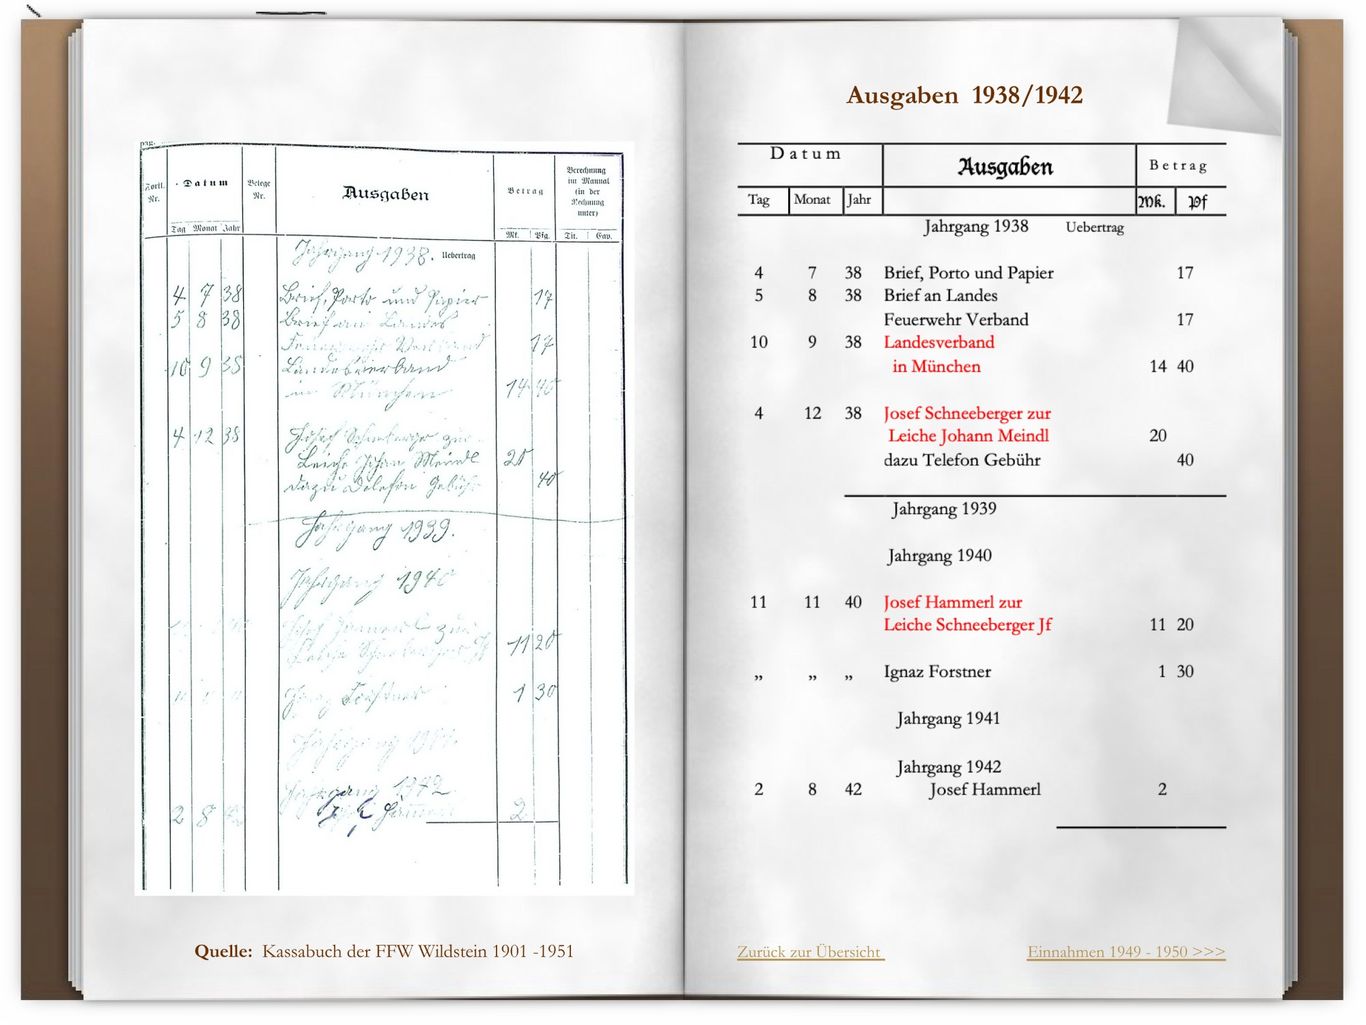 Fortl. Nr.
Datum
Belege Nr.
Ausgaben
Betrag
Berechnung
im Manual
(in der
Rechnung
unter)
Tag Monat Jahr
Mk. Pfg. Tit. Cav.
Jahrgang 1938. Uebertrag
4 7 38 Brief, Porto und Papier 17
5 8 38 Brief an Landes
Feuerwehr Verband 17
10 9 38 Landesverband
in München 14 40
4 12 38 Josef Schneeberger zur
Leiche Johan Meindl 20
dazu Telefon Gebühr 40
Jahrgang 1939.
Jahrgang 1940
Josef Hammerl zur
Leiche Schneeberger Jf 11 20
Ignaz Forstner 1 30
Jahrgang 1941.
Jahrgang 1942.
2 8 42 Josef Hammerl 2
Quelle: Kassabuch der FFW Wildstein 1901 -1951
Ausgaben 1938/1942
Datum Ausgaben Betrag
Tag Monat Jahr Mk. Pf
Jahrgang 1938 Uebertrag
4 7 38 Brief, Porto und Papier 17
5 8 38 Brief an Landes
Feuerwehr Verband 17
10 9 38 Landesverband
in München 14 40
4 12 38 Josef Schneeberger zur
Leiche Johann Meindl 20
dazu Telefon Gebühr 40
Jahrgang 1939
Jahrgang 1940
11 11 40 Josef Hammerl zur
Leiche Schneeberger Jf 11 20
„ „ „ Ignaz Forstner 1 30
Jahrgang 1941
Jahrgang 1942
2 8 42 Josef Hammerl 2
Zurück zur Übersicht
Einnahmen 1949 - 1950 >>>